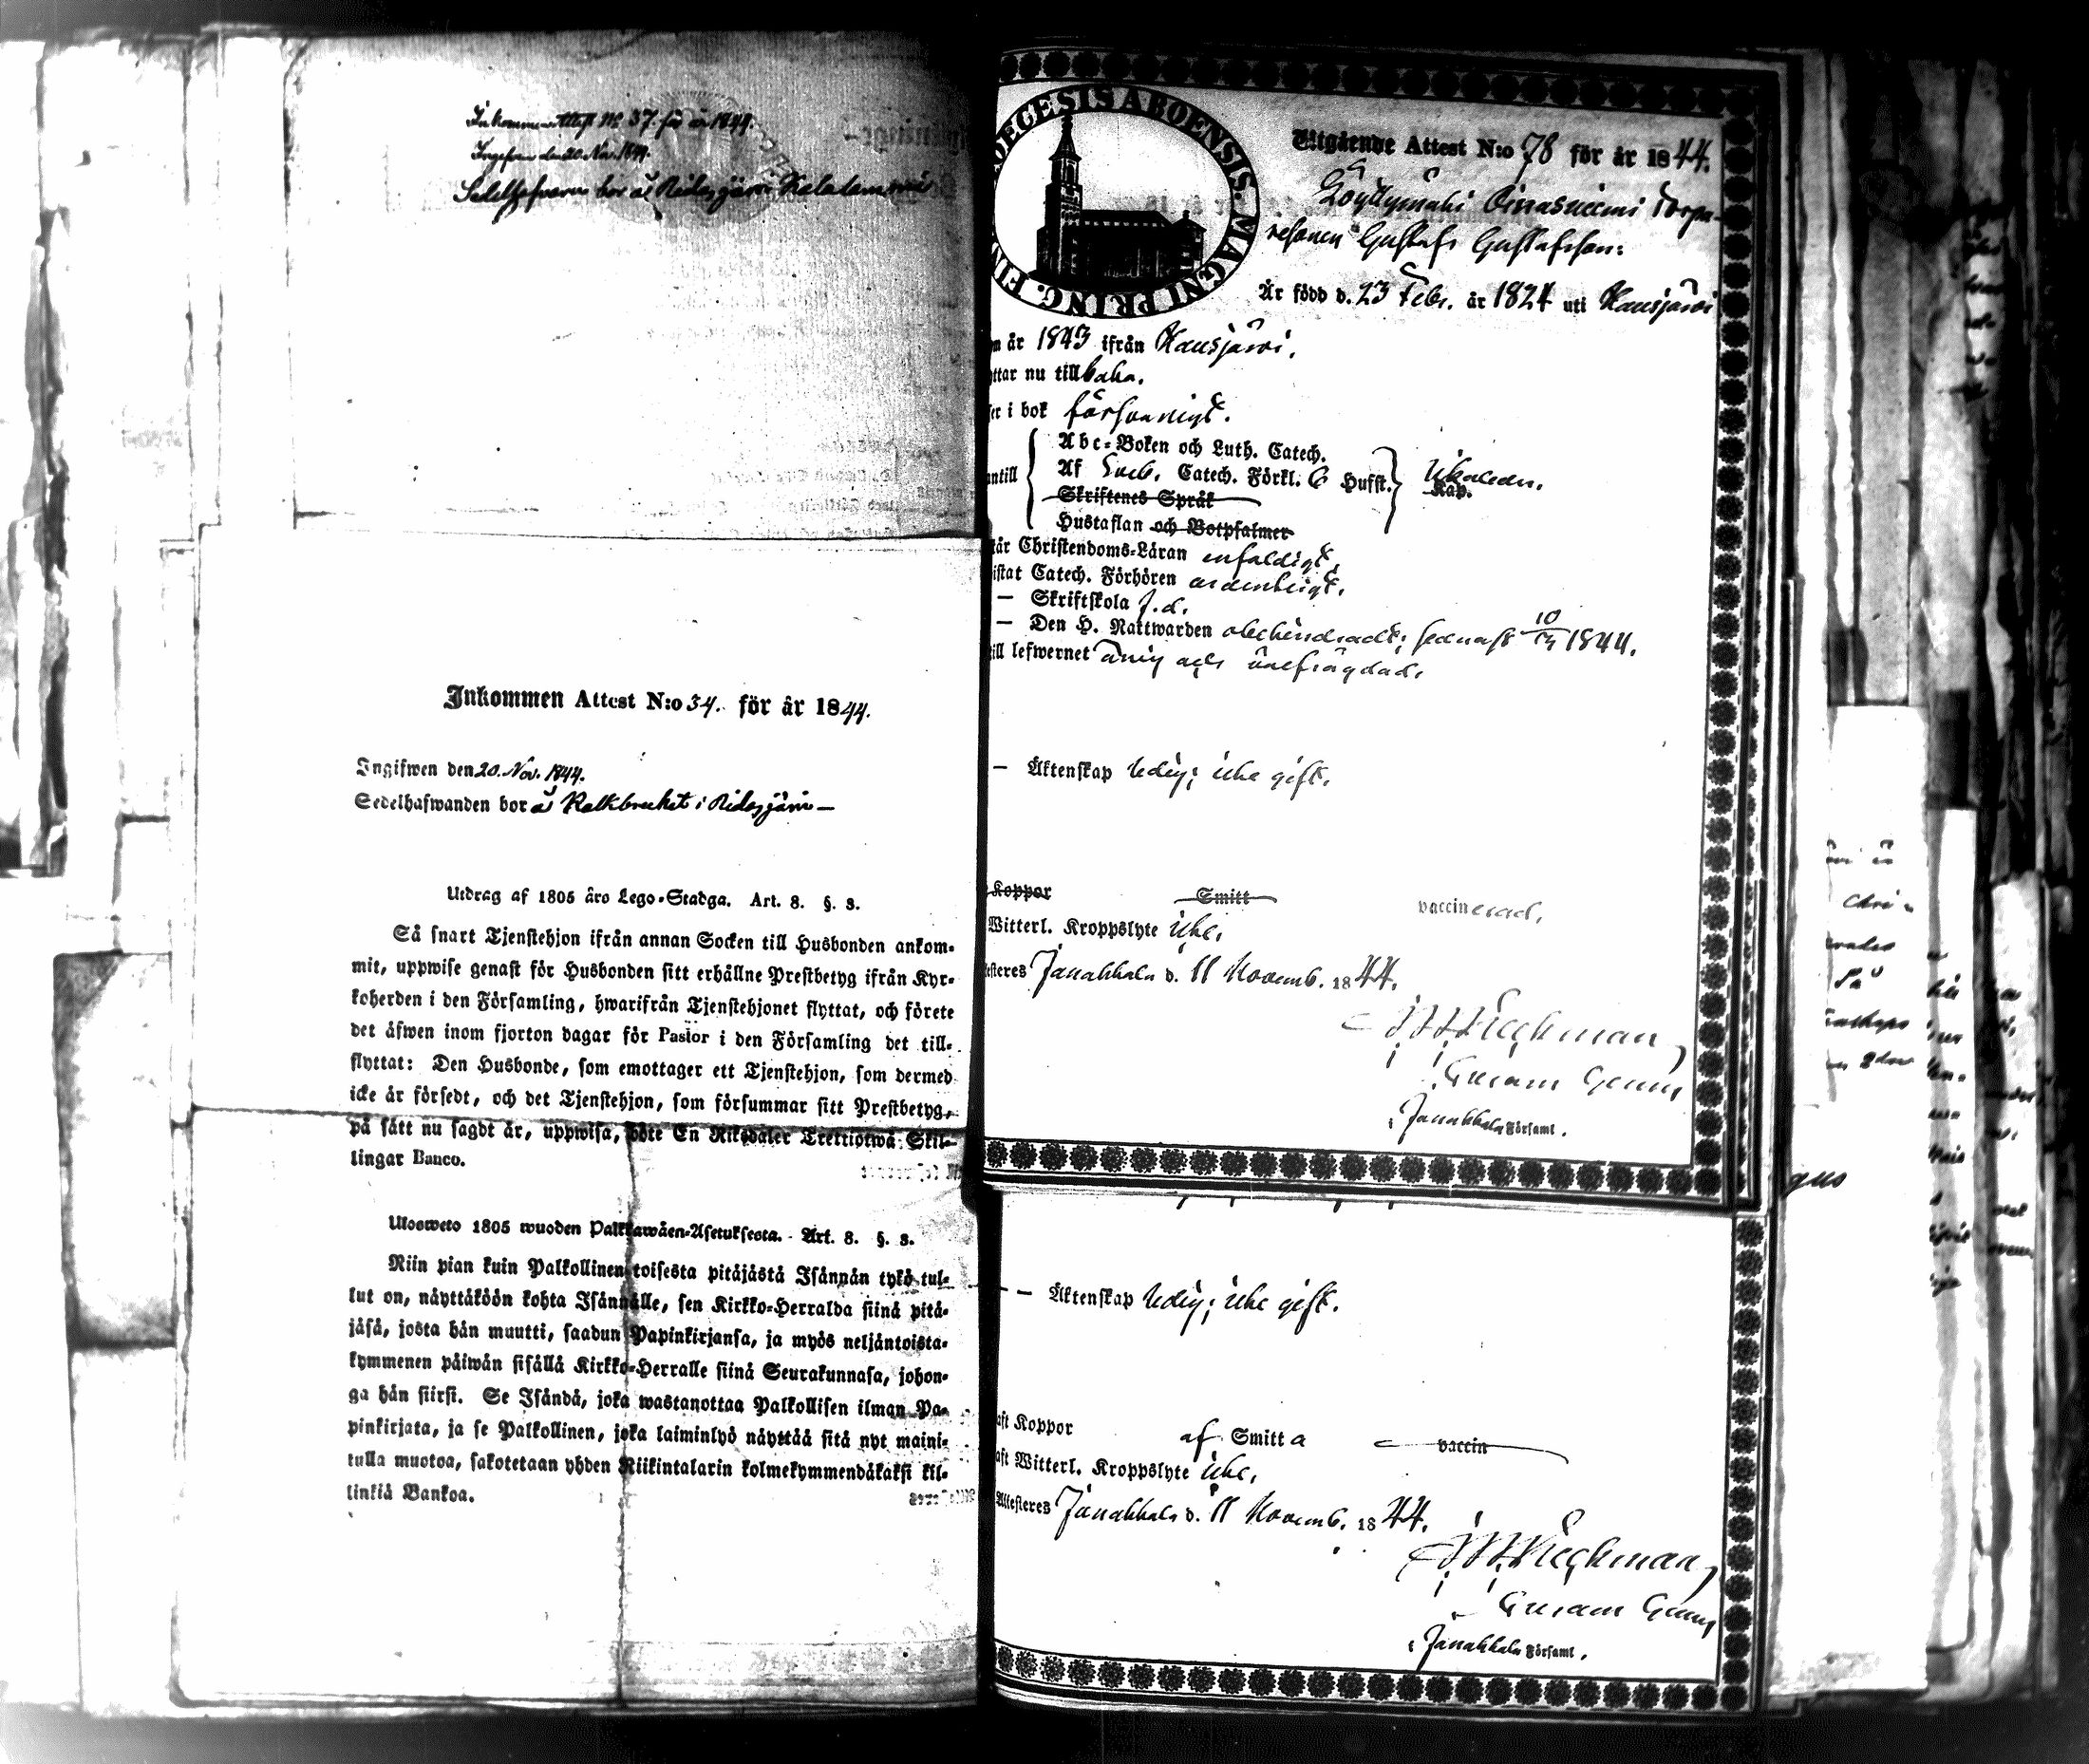 Inkommen Attest No 37. för år 1844.
Ingifven den 20 Nov. 1844.
bor å Ridasjärvi
Inkommen Attest N:o 34. för år 1844.
Ingifwen den 20. Nov. 1844.
Sedelhafwanden bor å Kalkbruket i Ridasjärvi —
Utdrag af 1805 års Lego-Stadga. Art. 8. §. 3.
Så snart Tjenstehjon ifrån annan Socken till Husbonden ankom-
mit, uppwise genast för Husbonden sitt erhållne Prestbetyg ifrån Kyr-
koherden i den Församling, hwarifrån Tjenstehjonet flyttat, och förete
det äfwen inom fjorton dagar för Pastor i den Församling det till-
flyttat: Den Husbonde, som emottager ett Tjenstehjon, som dermed
icke är försedt, och det Tjenstehjon, som försummar sitt Prestbetyg,
på sätt nu sagdt är, uppwisa, böte En Riksdaler Trettiotwå Skil-
lingar Banco.
Ulosweto 1805 wuoden Palkkawäen-Asetuksesta. Art. 8. §. 3.
Niin pian kuin Palkollinen toisesta pitäjästä Isännän tykö tul-
lut on, näyttäköön kohta Isännälle, sen Kirkko-Herralda siinä pitä-
jäsä, josta hän muutti, saadun Papinkirjansa, ja myös neljäntoista-
kymmenen päiwän sisällä Kirkko-Herralle siinä Seurakunnasa, johon-
ga hän siirsi. Se Isändä, joka wastanottaa Palkollisen ilman Pa-
pinkirjata, ja se Palkollinen, joka laiminlyö näyttää sitä nyt maini-
tulla muotoa, sakotetaan yhden Riikintalarin kolmekymmendäkaksi kil-
linkiä Bankoa.
ŒGESIS ABOENSIS. MAGNI PRING. FIN
Utgående Attest N:o 78 för år 1844.
Löyttymäki Oinasniemi Torpa-
resonen Gustaf Gustafsson:
Är född d. 23 Febr. år 1824 uti Hausjärvi
n år 1843 ifrån Hausjärvi.
ttar nu tillbaka.
ser i bok försvarligt.
antill
Abc-Boken och Luth. Catech.
Af Sveb. Catech. Förkl. 6 Hufst.
Skriftenes Språk
Hustaflan och Botpsalmer
Utaledn.
Kap.
står Christendoms-Läran enfaldigt.
istat Catech. Förhören ordentligt.
— Skriftskola f.d.
— Den H. Nattwarden obehindradt; sednast 10/11 1844.
till lefwernet ärlig och oberyktad.
— Äktenskap ledig; icke gift.
Koppor Smitt vaccinerad.
Witterl. Kroppslyte icke.
testeres Janakkala d. 11 Novemb. 1844.
i Janakkala Församl.
— Äktenskap ledig; icke gift.
aft Koppor af Smitta vaccin
aft Witterl. Kroppslyte icke.
Attesteres Janakkala d. 11 Novemb. 1844.
i Janakkala Församl.